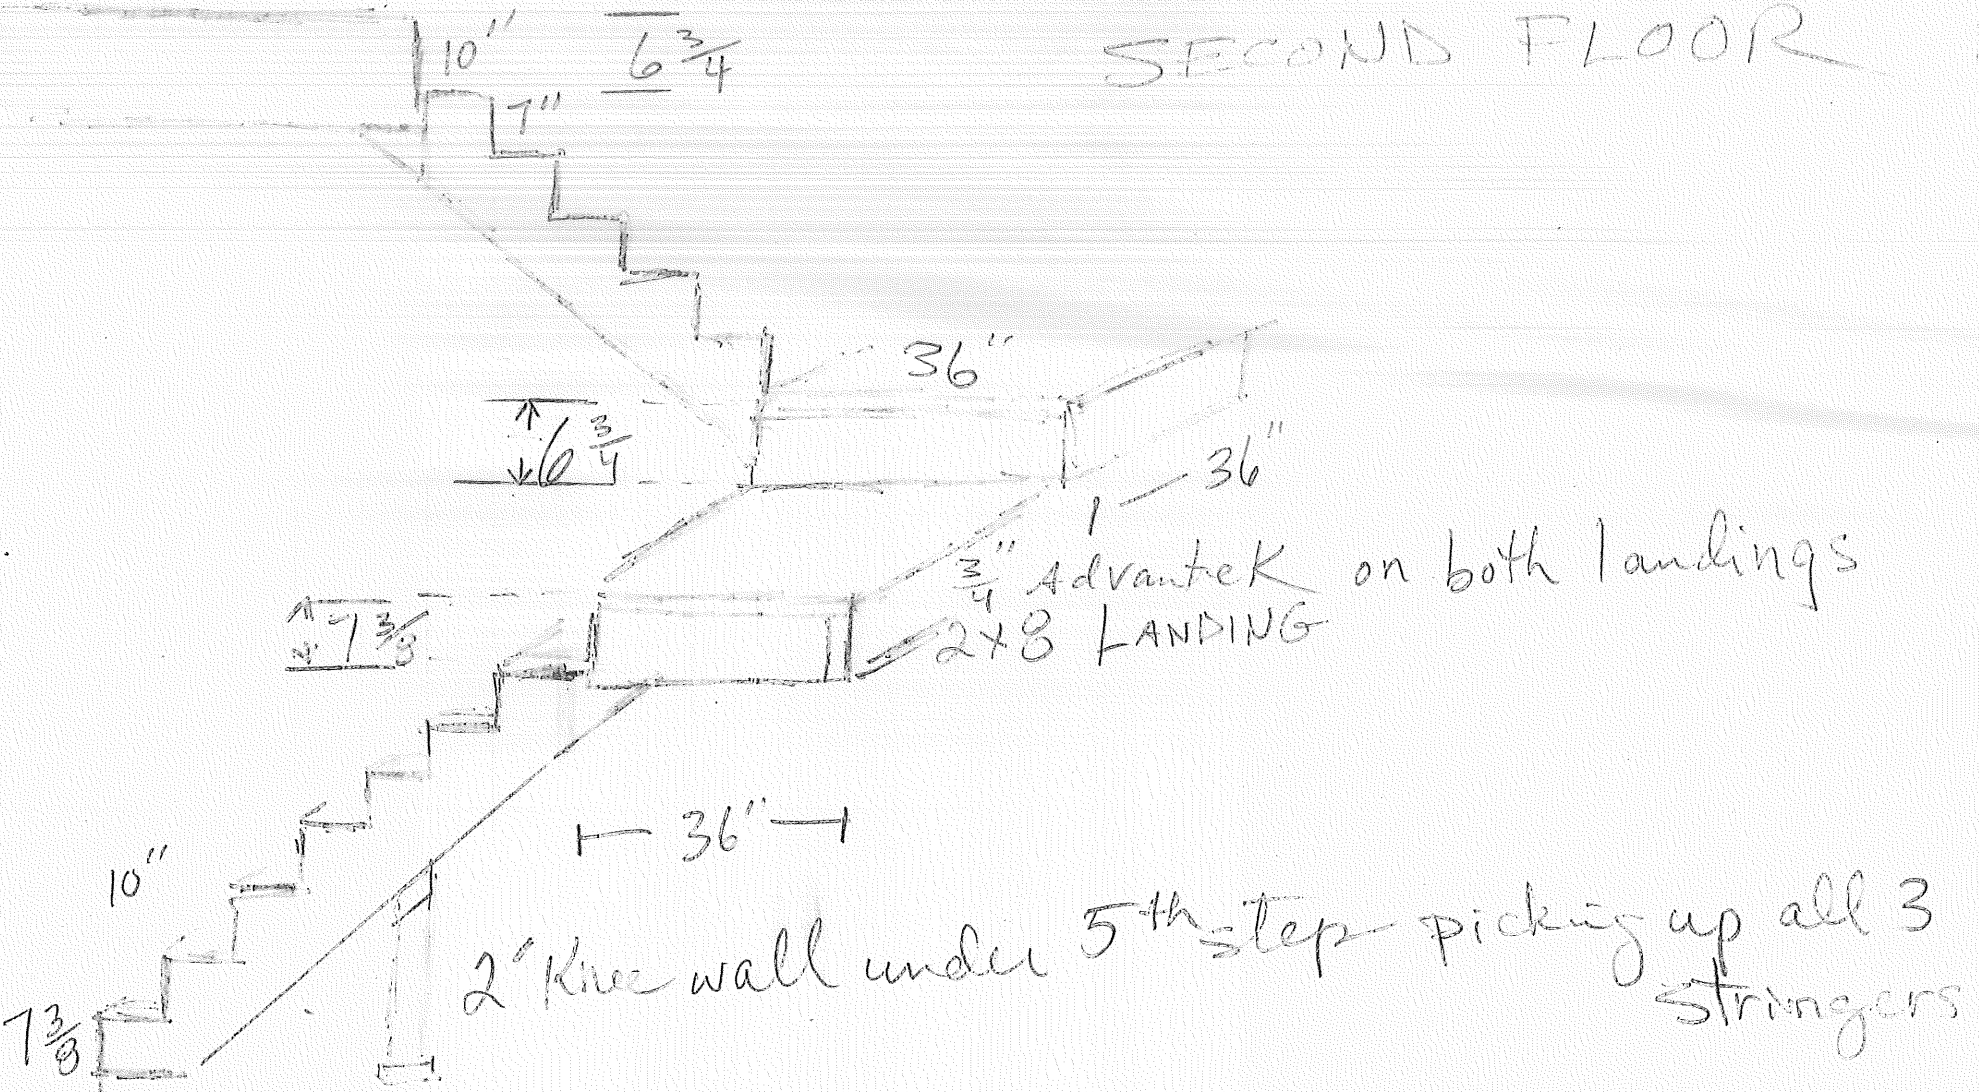 SECOND FLOOR
10"
6 3/4
7"
36"
6 3/4
36"
3/4" Advantek on both landings
2x8 LANDING
7 3/8
36"
10"
2" Knee wall under 5th step picking up all 3
stringers
7 3/8